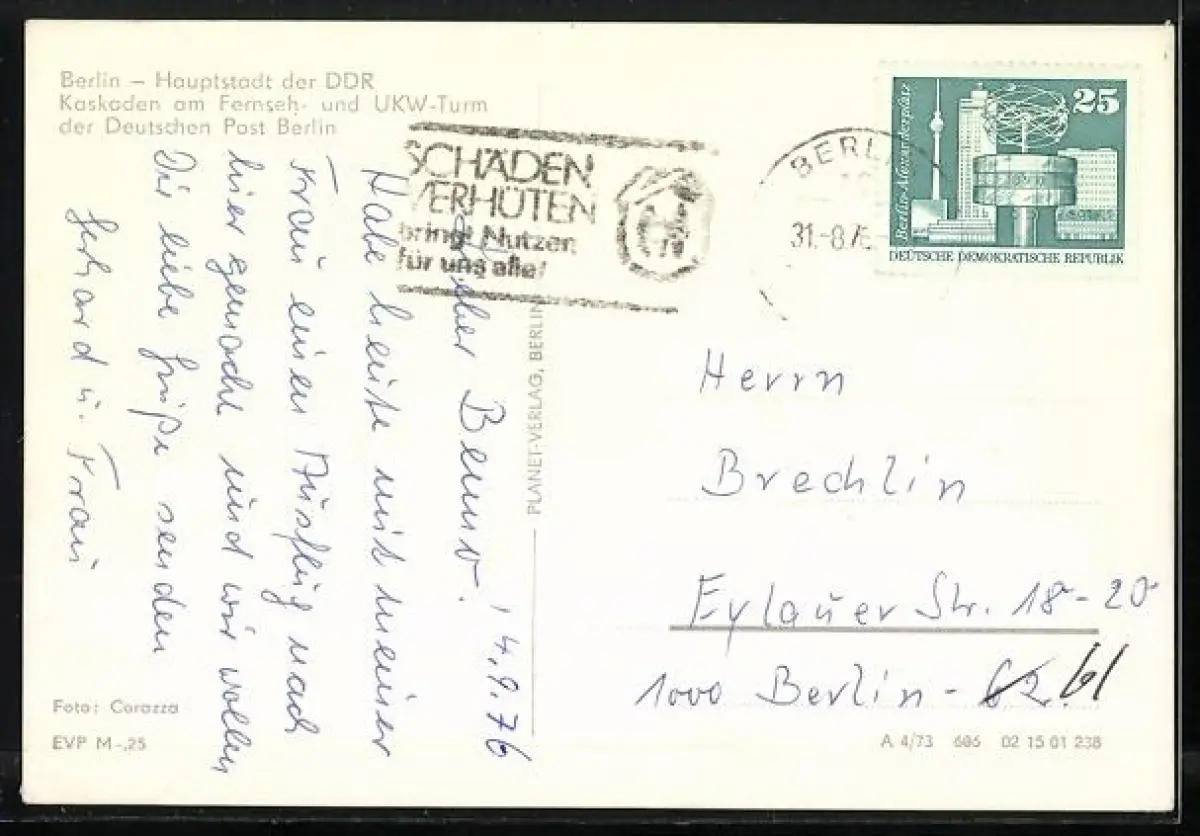 Berlin – Hauptstadt der DDR
Kaskaden am Fernseh- und UKW-Turm
der Deutschen Post Berlin
SCHÄDEN
VERHÜTEN
bringt Nutzen
für uns alle!
BERLIN
31.-8.76
Berlin-Alexanderplatz
25
DEUTSCHE DEMOKRATISCHE REPUBLIK
4.9.76
Lieber Benno!
Habe heute mit meiner
Frau einen Ausflug nach
hier gemacht und wir wollen
Dir liebe Grüße senden
Gerhard u. Frau
PLANET-VERLAG, BERLIN
Herrn
Brechlin
Eylauer Str. 18-20
1000 Berlin-62. 61
Foto: Corazza
EVP M -,25
A 4/73 606 02 15 01 238